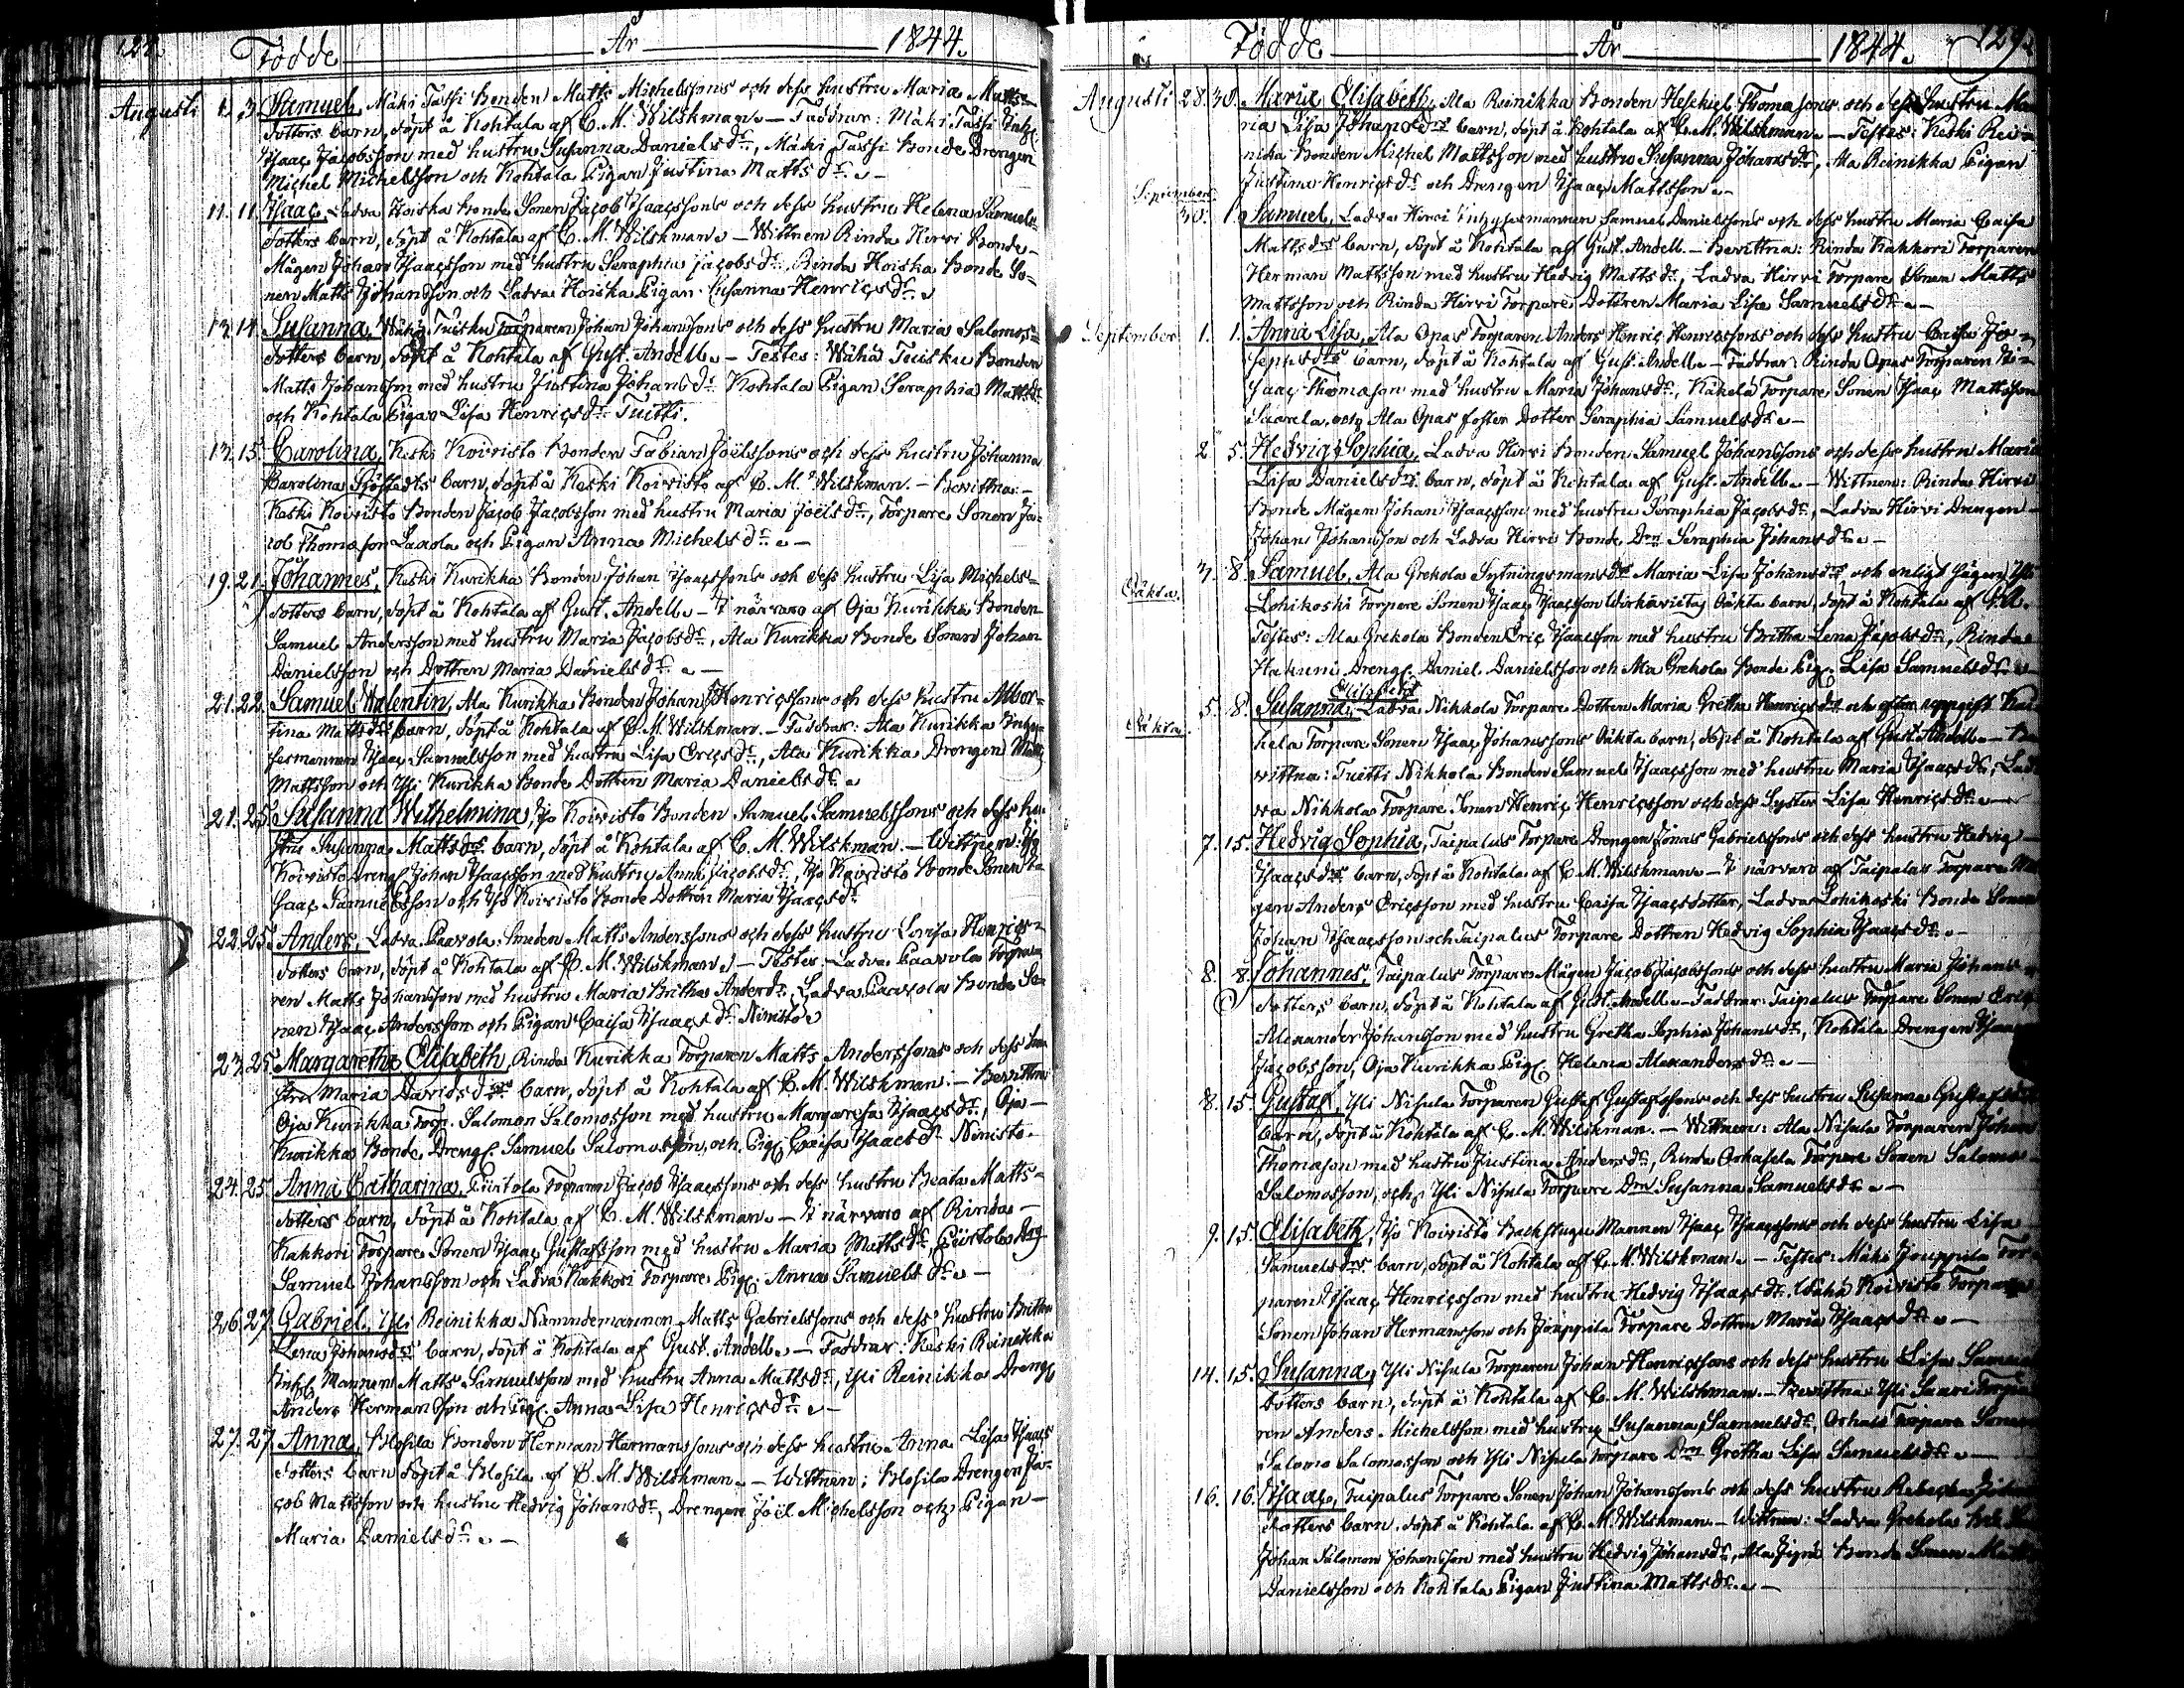 128.
Födde År 1844.
Augusti 1. 3. Samuel, Mäki Tassi Bonden Matts Michelssons och dess hustru Maria Matts-
dotters barn, döpt å Kohtala af C. M. Wilskman. – Faddrar: Mäki Tassi Inhys.
Isaac Jacobsson med hustru Susanna Danielsdr, Mäki Tassi Bonde Drengen
Michel Michelsson och Kohtala Pigan Justina Mattsdr. –
11. 11. Isaac, Ladva Hoiska Bonde Sonen Jacob Isaacssons och dess hustru Helena Samuels-
dotters barn, döpt å Kohtala af C. M. Wilskman. – Wittnen Rinda Hirvi Bonde
Mågen Johan Isaacsson med hustru Seraphia Jacobsdr, Rinda Hoiska Bonde So-
nen Matts Johansson och Ladva Hoiska Pigan Susanna Henricsdr.
13. 14. Susanna, Wähä Tuisku Torparen Johan Johanssons och dess hustru Maria Salomos-
dotters barn, döpt å Kohtala af Gust. Andell. – Testes: Wähä Tuisku Bonden
Matts Johansson med hustru Justina Johansdr Kohtala Pigan Seraphia Mattsdr
och Kohtala Pigan Lisa Henricsdr Tuitti.
13. 15. Carolina, Keski Koivisto Bonden Fabian Joëlssons och dess hustru Johanna
Carolina Sjöstedts barn, döpt å Keski Koivisto af C. M. Wilskman. – Bevittna: –
Keski Koivisto Bonden Jacob Jacobsson med hustru Maria Joëlsdr, Torpare Sonen Ja-
cob Thomasson Laxola och Pigan Anna Michelsdr. –
19. 21. Johannes, Keski Kurikka Bonden Johan Isaacssons och dess hustru Lisa Michels-
dotters barn, döpt å Kohtala af Gust. Andell. – I närvaro af Oja Kurikka Bonden
Samuel Andersson med hustru Maria Jacobsdr, Ala Kurikka Bonde Sonen Johan
Danielsson och Dottren Maria Danielsdr. –
21. 22. Samuel Walentin, Ala Kurikka Bonden Johan Henricssons och dess hustru Albor-
tina Mattsdrs barn, döpt å Kohtala af C. M. Wilskman. – Faddrar: Ala Kurikka Inhy-
sesmannen Isaac Samuelsson med hustru Lisa Ericsdr, Ala Kurikka Drengen Matts
Mattsson och Yli Kurikka Bonde Dottren Maria Danielsdr.
21. 25. Susanna Wilhelmina, Iso Koivisto Bonden Samuel Samuelssons och dess hu-
stru Susanna Mattsdrs barn, döpt å Kohtala af C. M. Wilskman. – Wittnen: Iso
Koivisto Dreng Johan Isaacsson med hustru Anna Jacobsdr, Iso Koivisto Bonde Sonen I-
saac Samuelsson och Iso Koivisto Bonde Dottren Maria Isaacsdr
22. 25. Anders, Ladva Paavola Smeden Matts Anderssons och dess hustru Lovisa Henrics-
dotters barn, döpt å Kohtala af C. M. Wilskman. – Testes: Ladva Paavola Torpa-
ren Matts Johansson med hustru Maria Britha Andersdr, Ladva Paavola Bonde So-
nen Isaac Andersson och Pigan Caisa Isaacsdr Ninisto
23. 25. Margaretha Elisabeth, Rinda Kurikka Torparen Matts Anderssons och dess hu-
stru Maria Davidsdrs barn, döpt å Kohtala af C. M. Wilskman. – Bevittna:
Oja Kurikka Torp. Salomon Salomosson med hustru Margareta Isaacsdr, Oja –
Kurikka Bonde Dreng. Samuel Salomosson, och Pig. Caisa Isaacsdr Ninisto.
24. 25. Anna Catharina, Piirtola Torparen Jacob Isaacssons och dess hustru Beata Matts-
dotters barn, döpt å Kohtala af C. M. Wilskman. – I närvaro af Rinda –
Kakkori Torpare Sonen Isaac Gustafsson med hustru Maria Mattsdr, Piirtola Drg
Samuel Johansson och Ladva Kakkori Torpare Pig. Anna Samuelsdr. –
26. 27. Gabriel, Yli Reinikka Nämndemannen Matts Gabrielssons och dess hustru Britha
Lena Johansdrs barn, döpt å Kohtala af Gust. Andell. – Faddrar: Keski Reinikka
Inhys Mannen Matts Samuelsson med hustru Anna Mattsdr, Yli Reinikka Dreng.
Anders Hermansson och Pig. Anna Lisa Henricsdr. –
27. 27. Anna, Blosila Bonden Herman Hermanssons och dess hustru Anna Lisa Isaacs
dotters barn döpt å Blosila af C. M. Wilskman. – Wittnen: Blosila Drengen Ja-
cob Mattsson och hustru Hedvig Johansdr, Drengen Joël Michelsson och Pigan –
Maria Danielsdr. –
129.
Födde År 1844.
Augusti 28. 30. Maria Elisabeth, Ala Reinikka Bonden Heskiel Thomassons och dess hustru Ma-
ria Lisa Johansdrs barn, döpt å Kohtala af C. M. Wilskman. – Testes: Keski Rei-
nikka Bonden Michel Mattsson med hustru Susanna Johansdr, Ala Reinikka Pigan
Justina Henricsdr och Drengen Isaac Mattsson. –
September
30. 1. Samuel, Ladva Hirvi Inhysesmannen Samuel Danielssons och dess hustru Maria Caisa
Mattsdrs barn, döpt å Kohtala af Gust. Andell. – Bevittna: Rinda Kakkori Torparen
Herman Mattsson med hustru Hedvig Mattsdr, Ladva Hirvi Torpare Sonen Matts
Mattsson och Rinda Hirvi Torpare Dottren Maria Lisa Samuelsdr. –
September 1. 1. Anna Lisa, Ala Opas Torparen Anders Henric Henricssons och dess hustru Caisa Jo-
sephsdrs barn, döpt å Kohtala af Gust. Andell. – Faddrar: Rinda Opas Torparen I-
saac Thomason med hustru Maria Johansdr, Käkelä Torpare Sonen Isaac Mattsson
Saarela och Ala Opas foster Dotter Seraphia Samuelsdr. –
2. 5. Hedvig Sophia, Ladva Hirvi Bonden Samuel Johanssons och dess hustru Maria
Lisa Danielsdrs barn, döpt å Kohtala af Gust. Andell. – Wittnen: Rinda Hirvi
Bonde Mågen Johan Isaacsson med hustru Seraphia Jacobsdr, Ladva Hirvi Drengen
Johan Johansson och Ladva Hirvi Bonde Drn Seraphia Johansdr. –
Oäkta. 3. 8. Samuel, Ala Grekola Sytningsmansdr Maria Lisa Johansdrs och enligt sägen Yli
Lohikoski Torpare Sonen Isaac Isaacsson oäkta barn, döpt å Kohtala af G. A.
Testes: Ala Grekola Bonden Eric Isaacsson med hustru Britha Lena Jacobsdr, Rinda
Hakuni Dreng. Daniel Danielsson och Ala Grekola Bonde Pig. Lisa Samuelsdr. –
Elisabeth
Oäkta. 5. 8. Susanna, Ladva Nikkola Torpare Dottren Maria Gretha Henricsdrs och efter uppgift
hela Torpare Sonen Isaac Johanssons Oäkta barn, döpt å Kohtala af Gust. Andell. – Be-
vittna: Tuitti Nikkola Bonden Samuel Isaacsson med hustru Maria Isaacsdr, Lad-
va Nikkola Torpare Sonen Henric Henricsson och dess Syster Lisa Henricsdr. –
7. 15. Hedvig Sophia, Taipalus Torpare Drengen Jonas Gabrielssons och dess hustru Hedvig
Isaacsdrs barn, döpt å Kohtala af C. M. Wilskman – I närvaro af Taipalus Torpare Må-
gen Anders Ericsson med hustru Caisa Isaacsdotter, Ladva Lohikoski Bonde Sonen
Johan Isaacsson och Taipalus Torpare Dottren Hedvig Sophia Isaacsdr. –
8. 8. Johannes, Taipalus Torpare Mågen Jacob Jacobssons och dess hustru Maria Johans
dotters barn, döpt å Kohtala af Gust. Andell. – Faddrar: Taipalus Torpare Sonen Eric
Alexander Johansson med hustru Gretha Sophia Johansdr, Kohtala Drengen Isaac
Jacobsson, Oja Kurikka Pig. Helena Alexandersdr. –
8. 15. Gustaf, Yli Nisula Torparen Gustaf Gustafssons och dess hustru Susanna Gustafsdrs
barn, döpt å Kohtala af C. M. Wilskman. – Wittnen: Ala Nisula Torparen Johan
Thomason med hustru Justina Andersdr, Rinda Torpare Sonen Salomo
Salomosson, och Yli Nisula Torpare Drn Susanna Samuelsdr. –
9. 15. Elisabeth, Iso Koivisto Backstugu Mannen Isaac Isaacssons och dess hustru Lisa
Samuelsdrs barn, döpt å Kohtala af C. M. Wilskman. – Testes: Mäki Jouppila Tor-
paren Isaac Henricsson med hustru Hedvig Isaacsdr, Wähä Koivisto Torpare
Sonen Johan Hermansson och Jouppila Torpare Dottren Maria Isaacsdr. –
14. 15. Susanna, Yli Nisula Torparen Johan Henricssons och dess hustru Lisa Samuels
dotters barn, döpt å Kohtala af C. M. Wilskman. – Bevittna: Yli Saari Torpa-
ren Anders Michelsson med hustru Susanna Samuelsdr, Torpare Sonen
Salomo Salomosson och Yli Nisula Torpare Drn Gretha Lisa Samuelsdr. –
16. 16. Isaac, Taipalus Torpare Sonen Johan Johanssons och dess hustru Rebecka Johans
dotters barn, döpt å Kohtala af C. M. Wilskman. – Wittnen: Ladva Grekola
Johan Salomon Johansson med hustru Hedvig Johansdr, Ala Bonde Sonen Matts
Danielsson och Kohtala Pigan Justina Mattsdr. –